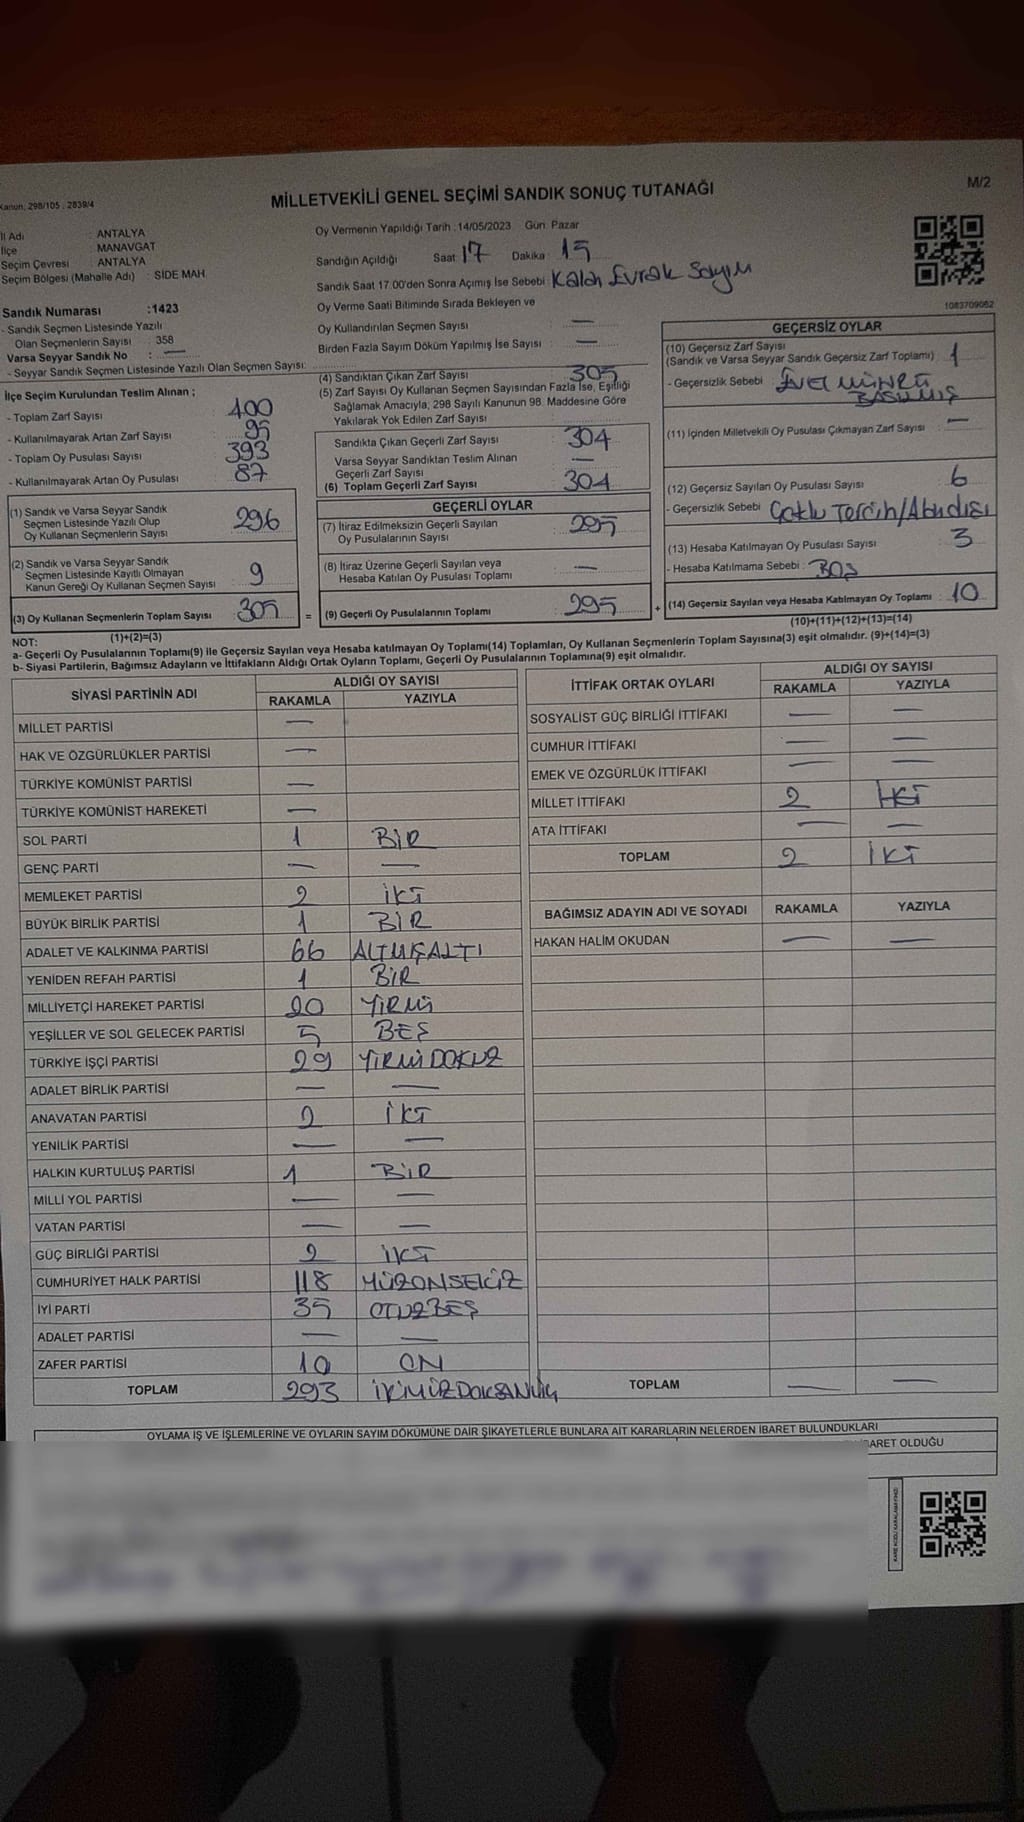 MİLLETVEKİLİ GENEL SEÇİMİ SANDIK SONUÇ TUTANAĞI
M/2
Kanun: 298/105 , 2839/4
İl Adı : ANTALYA
İlçe : MANAVGAT
Seçim Çevresi : ANTALYA
Seçim Bölgesi (Mahalle Adı) : SİDE MAH.
Oy Vermenin Yapıldığı Tarih :14/05/2023 Gün: Pazar
Sandığın Açıldığı Saat: 17 Dakika : 15
Sandık Saat 17.00'den Sonra Açımış İse Sebebi: Kalan Evrak Sayım
Sandık Numarası :1423
- Sandık Seçmen Listesinde Yazılı
Olan Seçmenlerin Sayısı : 358
Varsa Seyyar Sandık No : —
- Seyyar Sandık Seçmen Listesinde Yazılı Olan Seçmen Sayısı:
Oy Verme Saati Bitiminde Sırada Bekleyen ve
Oy Kullandırılan Seçmen Sayısı —
Birden Fazla Sayım Döküm Yapılmış İse Sayısı : —
1083709062
İlçe Seçim Kurulundan Teslim Alınan ;
- Toplam Zarf Sayısı 400
- Kullanılmayarak Artan Zarf Sayısı : 95
- Toplam Oy Pusulası Sayısı 393
- Kullanılmayarak Artan Oy Pusulası : 87
(1) Sandık ve Varsa Seyyar Sandık
Seçmen Listesinde Yazılı Olup
Oy Kullanan Seçmenlerin Sayısı : 296
(2) Sandık ve Varsa Seyyar Sandık
Seçmen Listesinde Kayıtlı Olmayan
Kanun Gereği Oy Kullanan Seçmen Sayısı : 9
(3) Oy Kullanan Seçmenlerin Toplam Sayısı : 305 =
(1)+(2)=(3)
(4) Sandıktan Çıkan Zarf Sayısı : 305
(5) Zarf Sayısı Oy Kullanan Seçmen Sayısından Fazla İse, Eşitliği
Sağlamak Amacıyla, 298 Sayılı Kanunun 98. Maddesine Göre
Yakılarak Yok Edilen Zarf Sayısı :
Sandıkta Çıkan Geçerli Zarf Sayısı : 304
Varsa Seyyar Sandıktan Teslim Alınan
Geçerli Zarf Sayısı : —
(6) Toplam Geçerli Zarf Sayısı : 304
GEÇERLİ OYLAR
(7) İtiraz Edilmeksizin Geçerli Sayılan
Oy Pusulalarının Sayısı : 295
(8) İtiraz Üzerine Geçerli Sayılan veya
Hesaba Katılan Oy Pusulası Toplamı : —
(9) Geçerli Oy Pusulalarının Toplamı : 295 +
GEÇERSİZ OYLAR
(10) Geçersiz Zarf Sayısı
(Sandık ve Varsa Seyyar Sandık Geçersiz Zarf Toplamı) : 1
- Geçersizlik Sebebi : EVET MÜHRÜ
BASILMIŞ
(11) İçinden Milletvekili Oy Pusulası Çıkmayan Zarf Sayısı : —
(12) Geçersiz Sayılan Oy Pusulası Sayısı : 6
- Geçersizlik Sebebi : Çoklu Tercih/
(13) Hesaba Katılmayan Oy Pusulası Sayısı : 3
- Hesaba Katılmama Sebebi : BOŞ
(14) Geçersiz Sayılan veya Hesaba Katılmayan Oy Toplamı : 10
(10)+(11)+(12)+(13)=(14)
NOT:
a- Geçerli Oy Pusulalarının Toplamı(9) ile Geçersiz Sayılan veya Hesaba katılmayan Oy Toplamı(14) Toplamları, Oy Kullanan Seçmenlerin Toplam Sayısına(3) eşit olmalıdır. (9)+(14)=(3)
b- Siyasi Partilerin, Bağımsız Adayların ve İttifakların Aldığı Ortak Oyların Toplamı, Geçerli Oy Pusulalarının Toplamına(9) eşit olmalıdır.
SİYASİ PARTİNİN ADI ALDIĞI OY SAYISI
RAKAMLA YAZIYLA
MİLLET PARTİSİ —
HAK VE ÖZGÜRLÜKLER PARTİSİ —
TÜRKİYE KOMÜNİST PARTİSİ —
TÜRKİYE KOMÜNİST HAREKETİ —
SOL PARTİ 1 BİR
GENÇ PARTİ — —
MEMLEKET PARTİSİ 2 İKİ
BÜYÜK BİRLİK PARTİSİ 1 BİR
ADALET VE KALKINMA PARTİSİ 66 ALTMIŞALTI
YENİDEN REFAH PARTİSİ 1 BİR
MİLLİYETÇİ HAREKET PARTİSİ 20 YİRMİ
YEŞİLLER VE SOL GELECEK PARTİSİ 5 BEŞ
TÜRKİYE İŞÇİ PARTİSİ 29 YİRMİDOKUZ
ADALET BİRLİK PARTİSİ — —
ANAVATAN PARTİSİ 2 İKİ
YENİLİK PARTİSİ — —
HALKIN KURTULUŞ PARTİSİ 1 BİR
MİLLİ YOL PARTİSİ — —
VATAN PARTİSİ — —
GÜÇ BİRLİĞİ PARTİSİ 2 İKİ
CUMHURİYET HALK PARTİSİ 118 YÜZONSEKİZ
İYİ PARTİ 35 OTUZBEŞ
ADALET PARTİSİ — —
ZAFER PARTİSİ 10 ON
TOPLAM 293 İKİYÜZDOKSANÜÇ
İTTİFAK ORTAK OYLARI ALDIĞI OY SAYISI
RAKAMLA YAZIYLA
SOSYALİST GÜÇ BİRLİĞİ İTTİFAKI — —
CUMHUR İTTİFAKI — —
EMEK VE ÖZGÜRLÜK İTTİFAKI — —
MİLLET İTTİFAKI 2 İKİ
ATA İTTİFAKI — —
TOPLAM 2 İKİ
BAĞIMSIZ ADAYIN ADI VE SOYADI RAKAMLA YAZIYLA
HAKAN HALİM OKUDAN — —
TOPLAM — —
OYLAMA İŞ VE İŞLEMLERİNE VE OYLARIN SAYIM DÖKÜMÜNE DAİR ŞİKAYETLERLE BUNLARA AİT KARARLARIN NELERDEN İBARET BULUNDUKLARI
BARET OLDUĞU